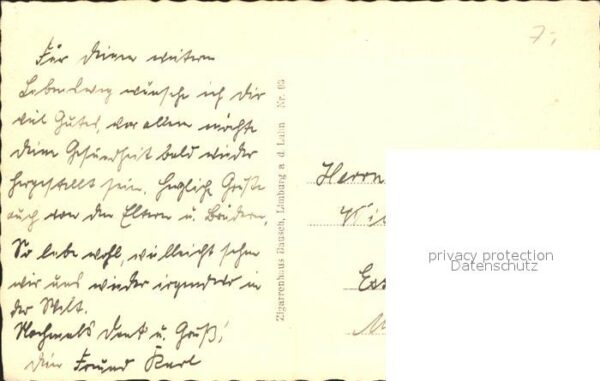 7,-
Für deinen weitern
Lebensweg wünsche ich dir
viel Gutes, vor allem möchte
deine Gesundheit bald wieder
hergestellt sein. Herzliche Grüße
auch von den Eltern u. Brüdern.
So lebe wohl, vielleicht sehn
wir uns wieder irgendwo in
der Welt.
Nochmals Dank u. Gruß!
dein Freund Karl
Zigarrenhaus Bausch, Limburg a d. Lahn Nr. 63
Herrn
privacy protection
Datenschutz